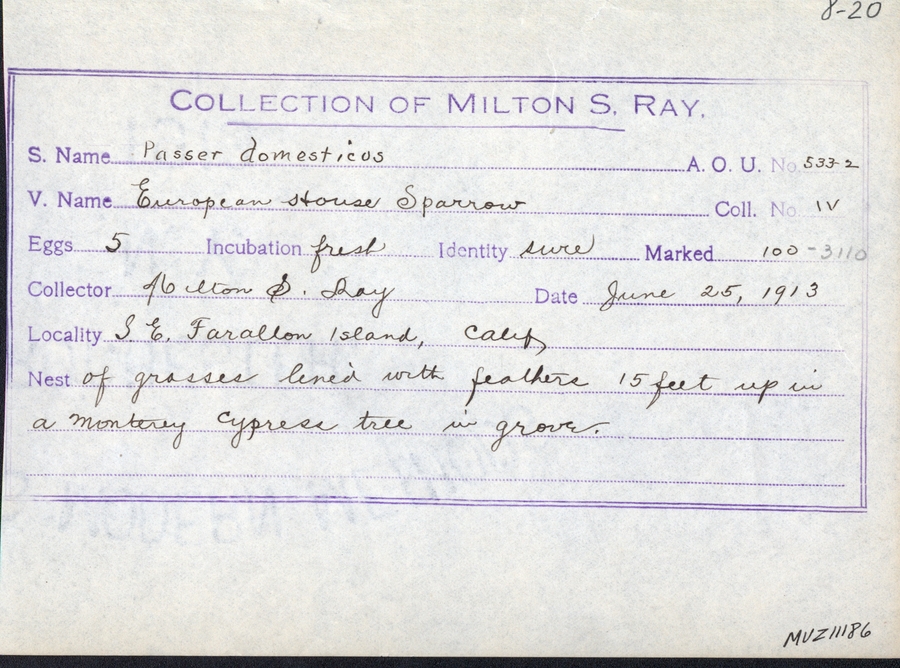 8-20
COLLECTION OF MILTON S. RAY.
S. Name Passer domesticus A. O. U. No. 533-2
V. Name European House Sparrow Coll. No. IV
Eggs 5 Incubation fresh Identity sure Marked 100-3110
Collector Milton S. Ray Date June 25, 1913
Locality S. E. Farallon Island, Calif
Nest of grasses lined with feathers 15 feet up in
a monterey cypress tree in grove.
MVZ11186